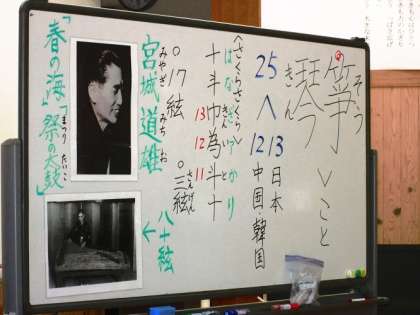 箏 そう
琴 きん
> こと
25 へ 12 13
日本
中国・韓国
〈さくらさくら〉
はなざかり
十斗巾為斗十
13 12 11
○17絃
○三絃 さんげん
宮城道雄 みやぎ みちお
八十絃
←
「春の海」「祭の太鼓」
まつり たいこ